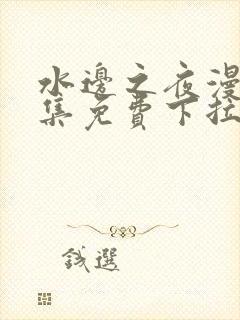 水邊之夜漫
集免費下拉
錢選